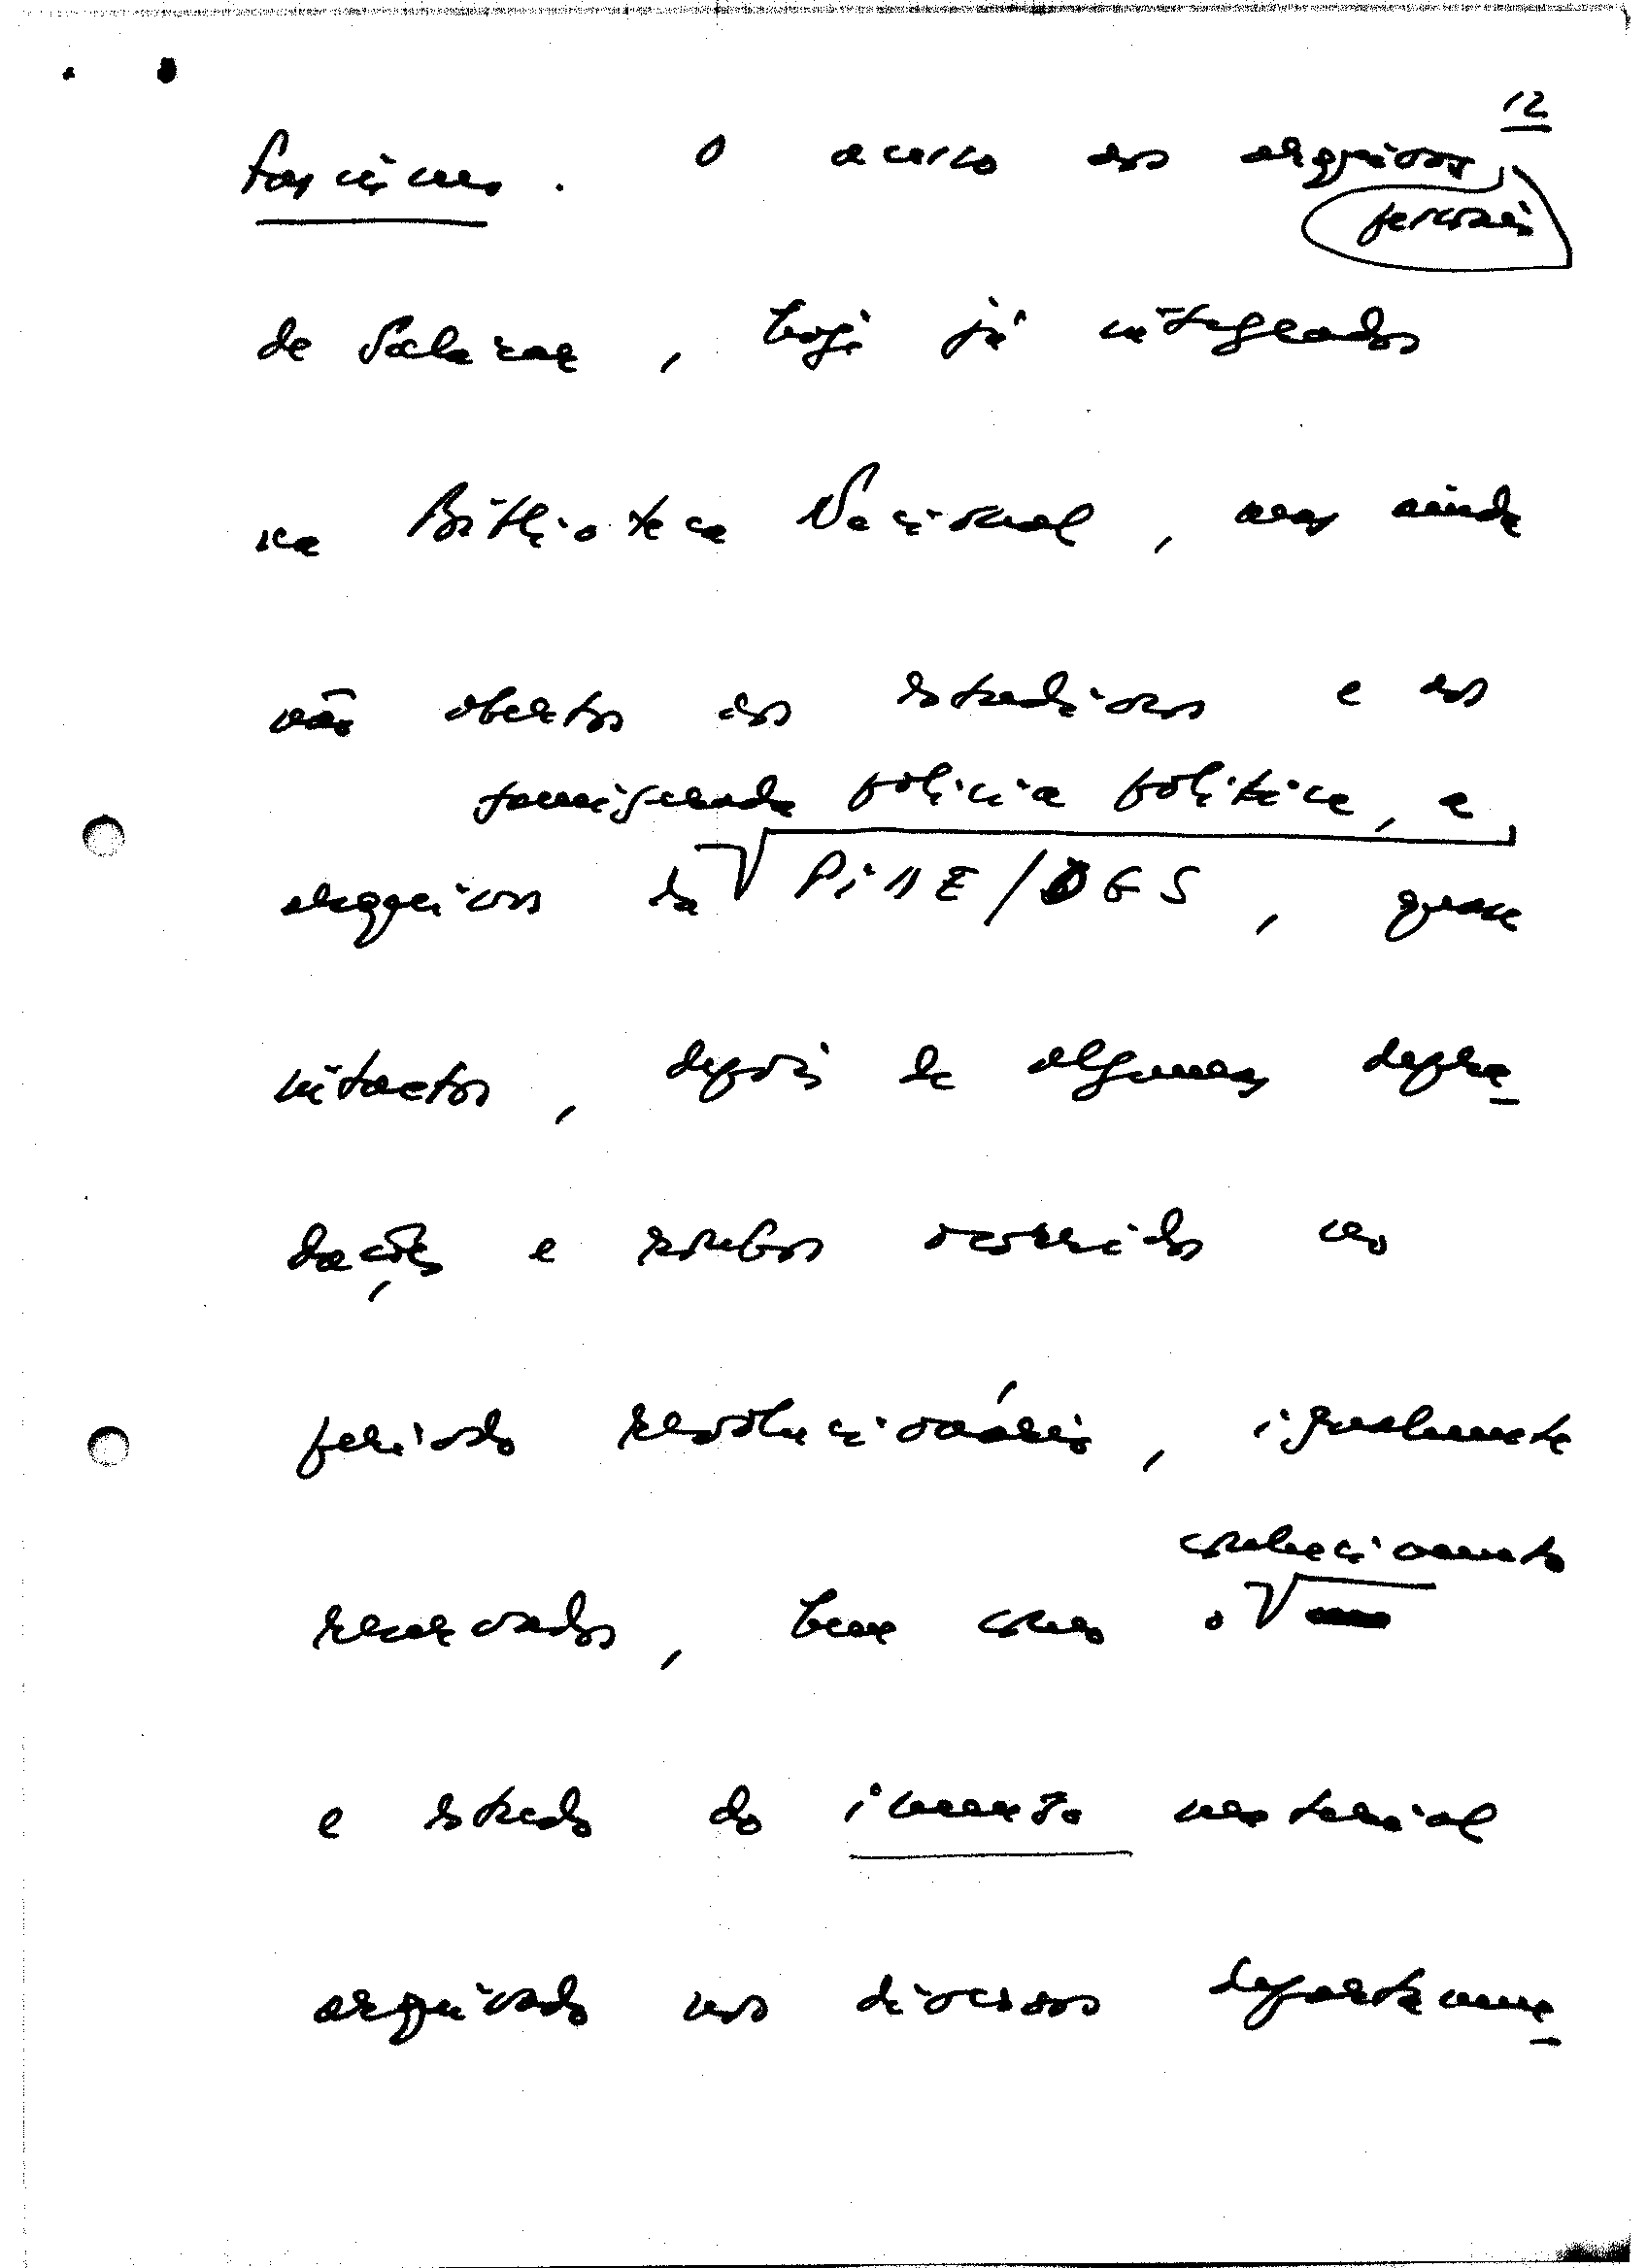 12
fascismo. O acervo dos arquivos
pessoais
de Salazar, hoje já integrados
na Biblioteca Nacional, mas ainda
não abertos aos estudiosos e os
famigerada polícia política, a
arquivos da PIDE/DGS, quase
intactos, depois de algumas depre
dações e roubos ocorridos no
período revolucionário, igualmente
conhecimento
reservados, bem como o
e estudo do imenso material
arquivado nos diversos departame